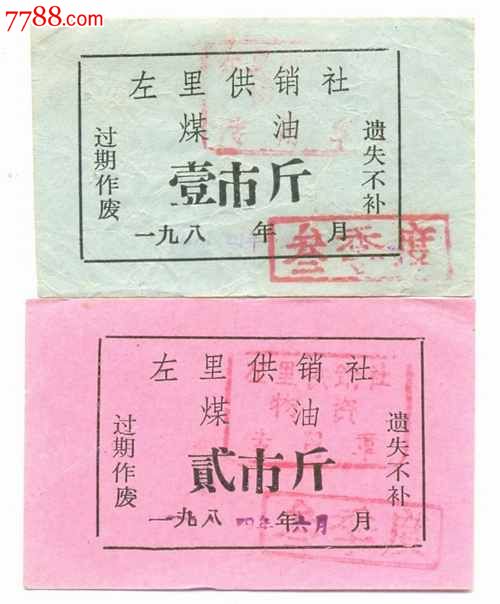 7788.com
左里供销社
煤油
壹市斤
过期作废
遗失不补
一九八 年 月
叁季度
左里供销社
煤油
贰市斤
过期作废
遗失不补
一九八四年年六月月
左里供销社
物资